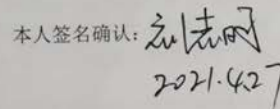 本人签名确认：
2021.4.27